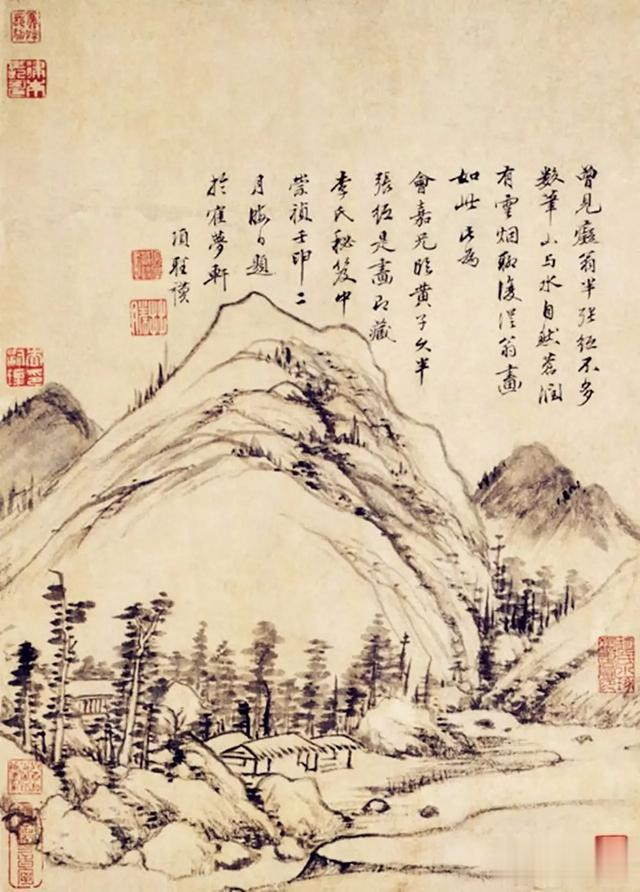 曾見癡翁半張紙不多
数筆山与水自然蒼潤
有雲烟聊復從翁畫
如此此為
會嘉兄臨黄子久半
張紙是畫即藏
李氏秘笈中
崇禎壬申二
月晦日題
於寉夢軒
項聖謨